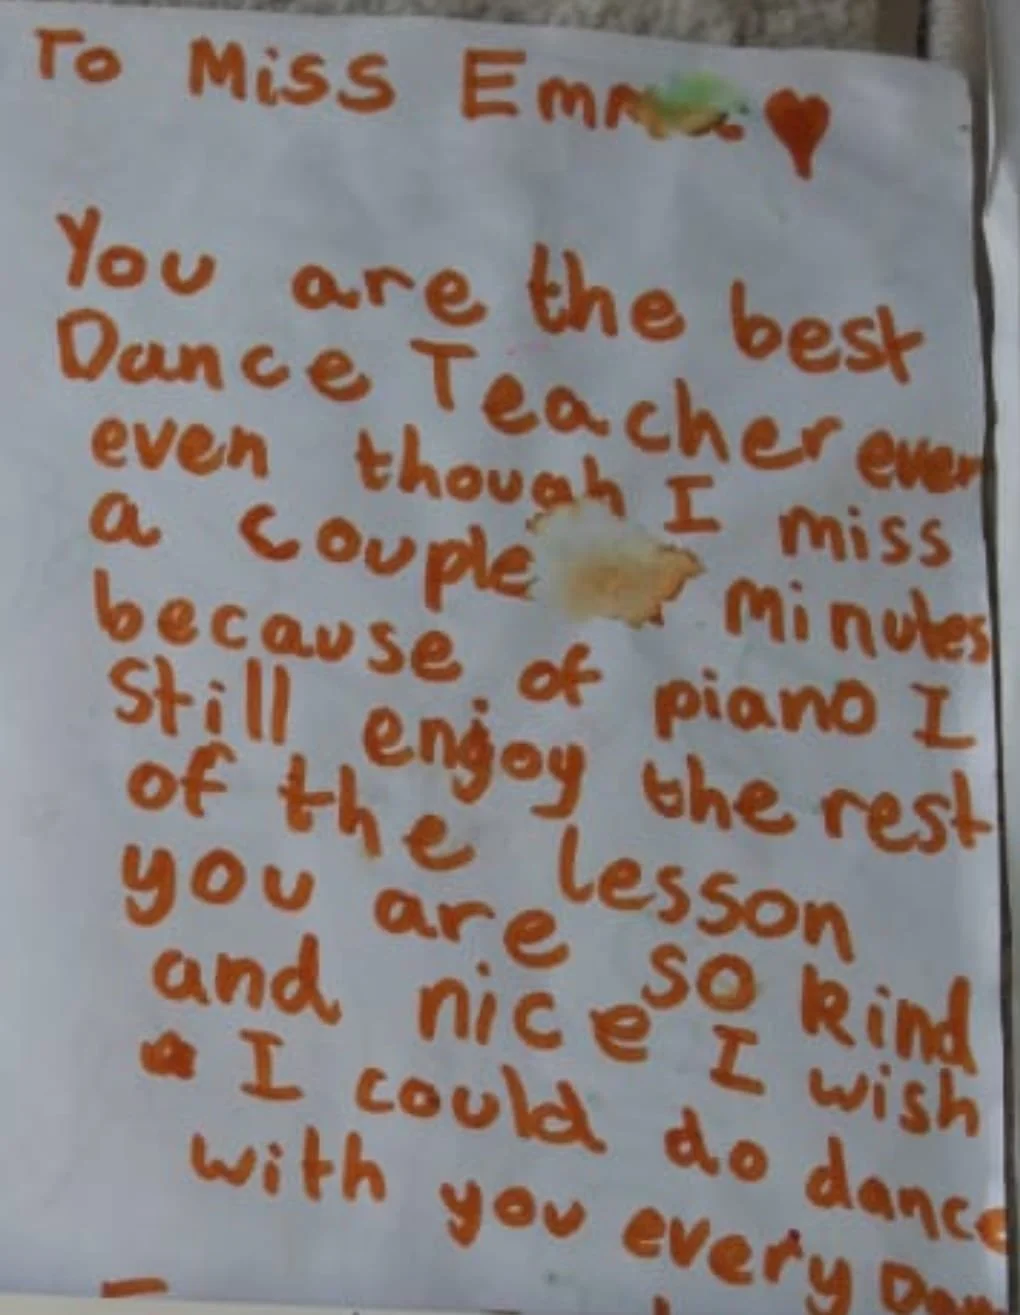 To Miss ♥
You are the best
Dance Teacher ever
even though I miss
a couple minutes
because of piano I
Still enjoy the rest
of the lesson
you are so kind
and nice I wish
I could do dance
with you every